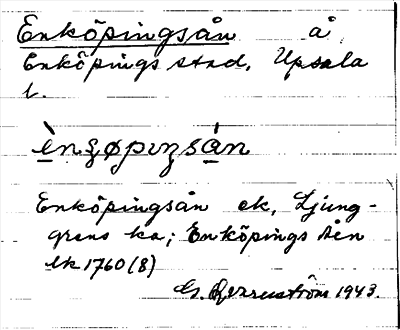 Enköpingsån å
Enköpings stad, Upsala
l.
ènꞬøpıŋsån
Enköpingsån ek, Ljung-
grens ka; Enköpings åen
lk 1760 (8)
G. 1943.